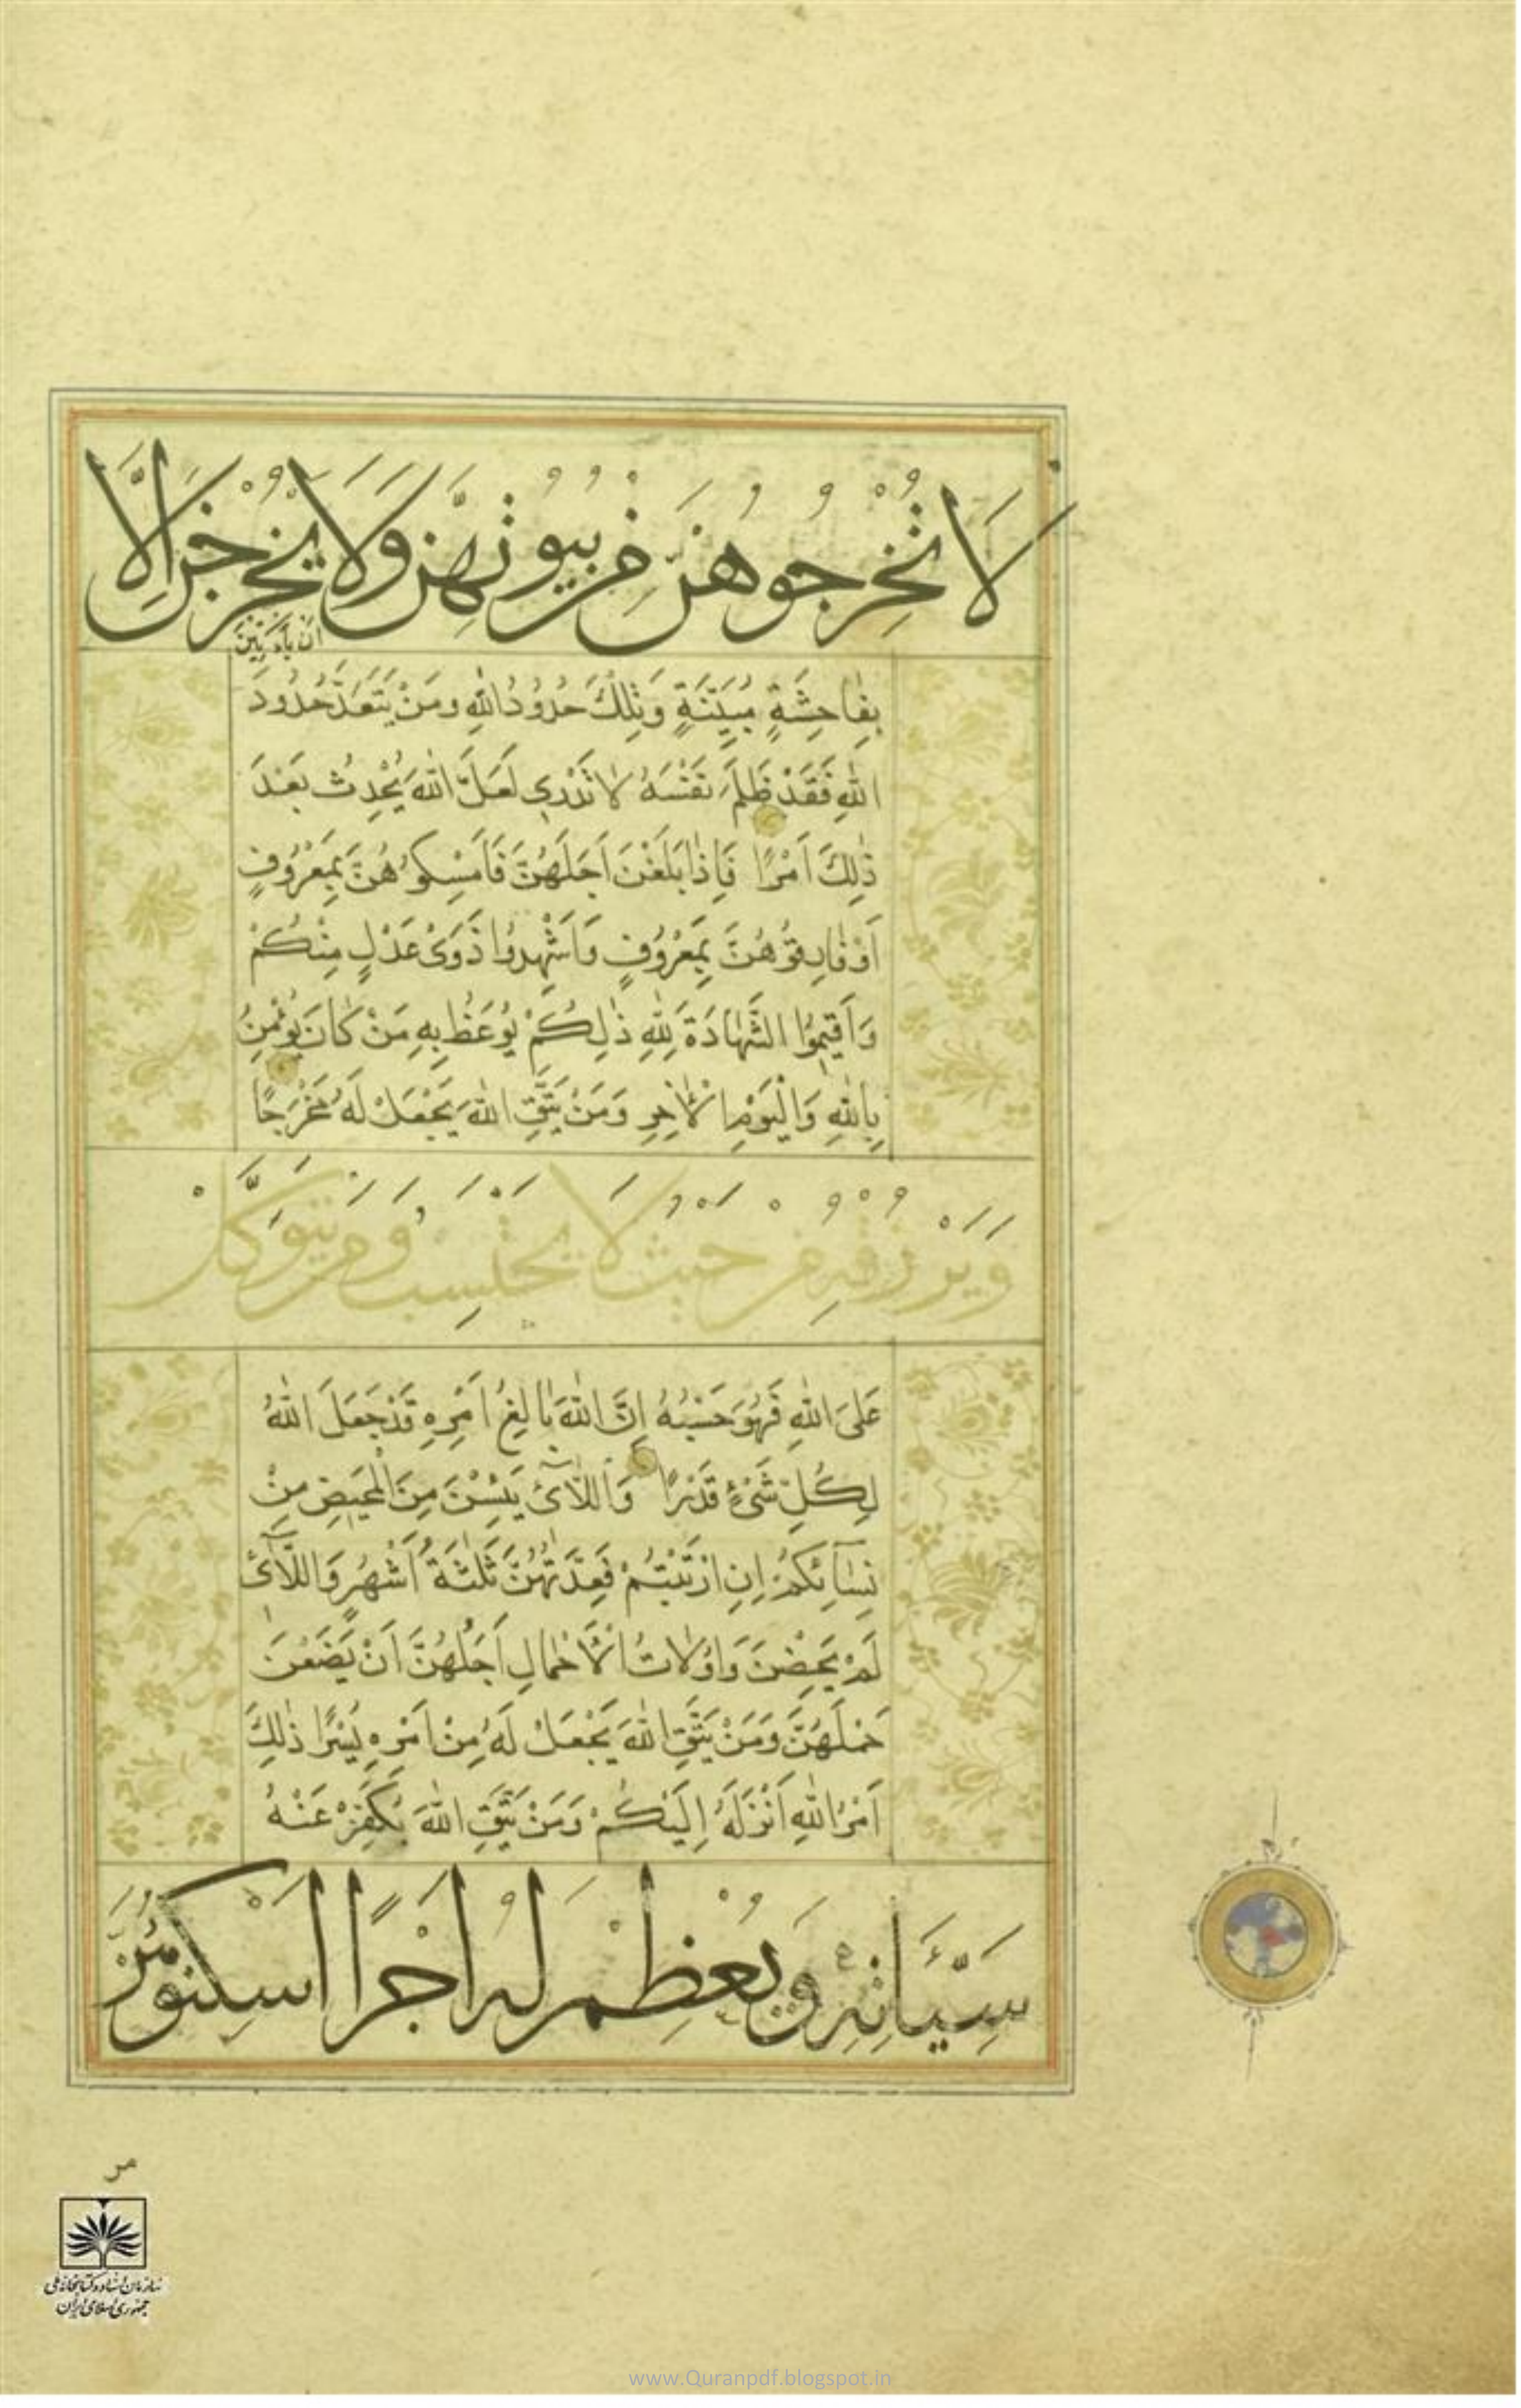 لَا تُخْرِجُوهُنَّ مِنْ بُيُوتِهِنَّ وَلَا يَخْرُجْنَ اِلَّا
اَنْ يَأْتِينَ
بِفَاحِشَةٍ مُبَيِّنَةٍ وَتِلْكَ حُدُودُ اللّٰهِ وَمَنْ يَتَعَدَّ حُدُودَ
اللّٰهِ فَقَدْ ظَلَمَ نَفْسَهُ لَا تَدْرِي لَعَلَّ اللّٰهَ يُحْدِثُ بَعْدَ
ذٰلِكَ اَمْرًا فَاِذَا بَلَغْنَ اَجَلَهُنَّ فَاَمْسِكُوهُنَّ بِمَعْرُوفٍ
اَوْ فَارِقُوهُنَّ بِمَعْرُوفٍ وَاَشْهِدُوا ذَوَىْ عَدْلٍ مِنْكُمْ
وَاَقِيمُوا الشَّهَادَةَ لِلّٰهِ ذٰلِكُمْ يُوعَظُ بِهِ مَنْ كَانَ يُؤْمِنُ
بِاللّٰهِ وَالْيَوْمِ الْاٰخِرِ وَمَنْ يَتَّقِ اللّٰهَ يَجْعَلْ لَهُ مَخْرَجًا
وَيَرْزُقْهُ مِنْ حَيْثُ لَا يَحْتَسِبُ وَمَنْ يَتَوَكَّلْ
عَلَى اللّٰهِ فَهُوَ حَسْبُهُ اِنَّ اللّٰهَ بَالِغُ اَمْرِهِ قَدْ جَعَلَ اللّٰهُ
لِكُلِّ شَىْءٍ قَدْرًا وَاللَّآئِ يَئِسْنَ مِنَ الْمَحِيضِ مِنْ
نِسَآئِكُمْ اِنِ ارْتَبْتُمْ فَعِدَّتُهُنَّ ثَلٰثَةُ اَشْهُرٍ وَاللَّآئِ
لَمْ يَحِضْنَ وَاُولَاتُ الْاَحْمَالِ اَجَلُهُنَّ اَنْ يَضَعْنَ
حَمْلَهُنَّ وَمَنْ يَتَّقِ اللّٰهَ يَجْعَلْ لَهُ مِنْ اَمْرِهِ يُسْرًا ذٰلِكَ
اَمْرُ اللّٰهِ اَنْزَلَهُ اِلَيْكُمْ وَمَنْ يَتَّقِ اللّٰهَ يُكَفِّرْ عَنْهُ
سَيِّئَاتِهِ وَيُعْظِمْ لَهُ اَجْرًا اَسْكِنُوهُنَّ
مر
سازمان اسناد و کتابخانه ملی
جمهوری اسلامی ایران
www.Quranpdf.blogspot.in